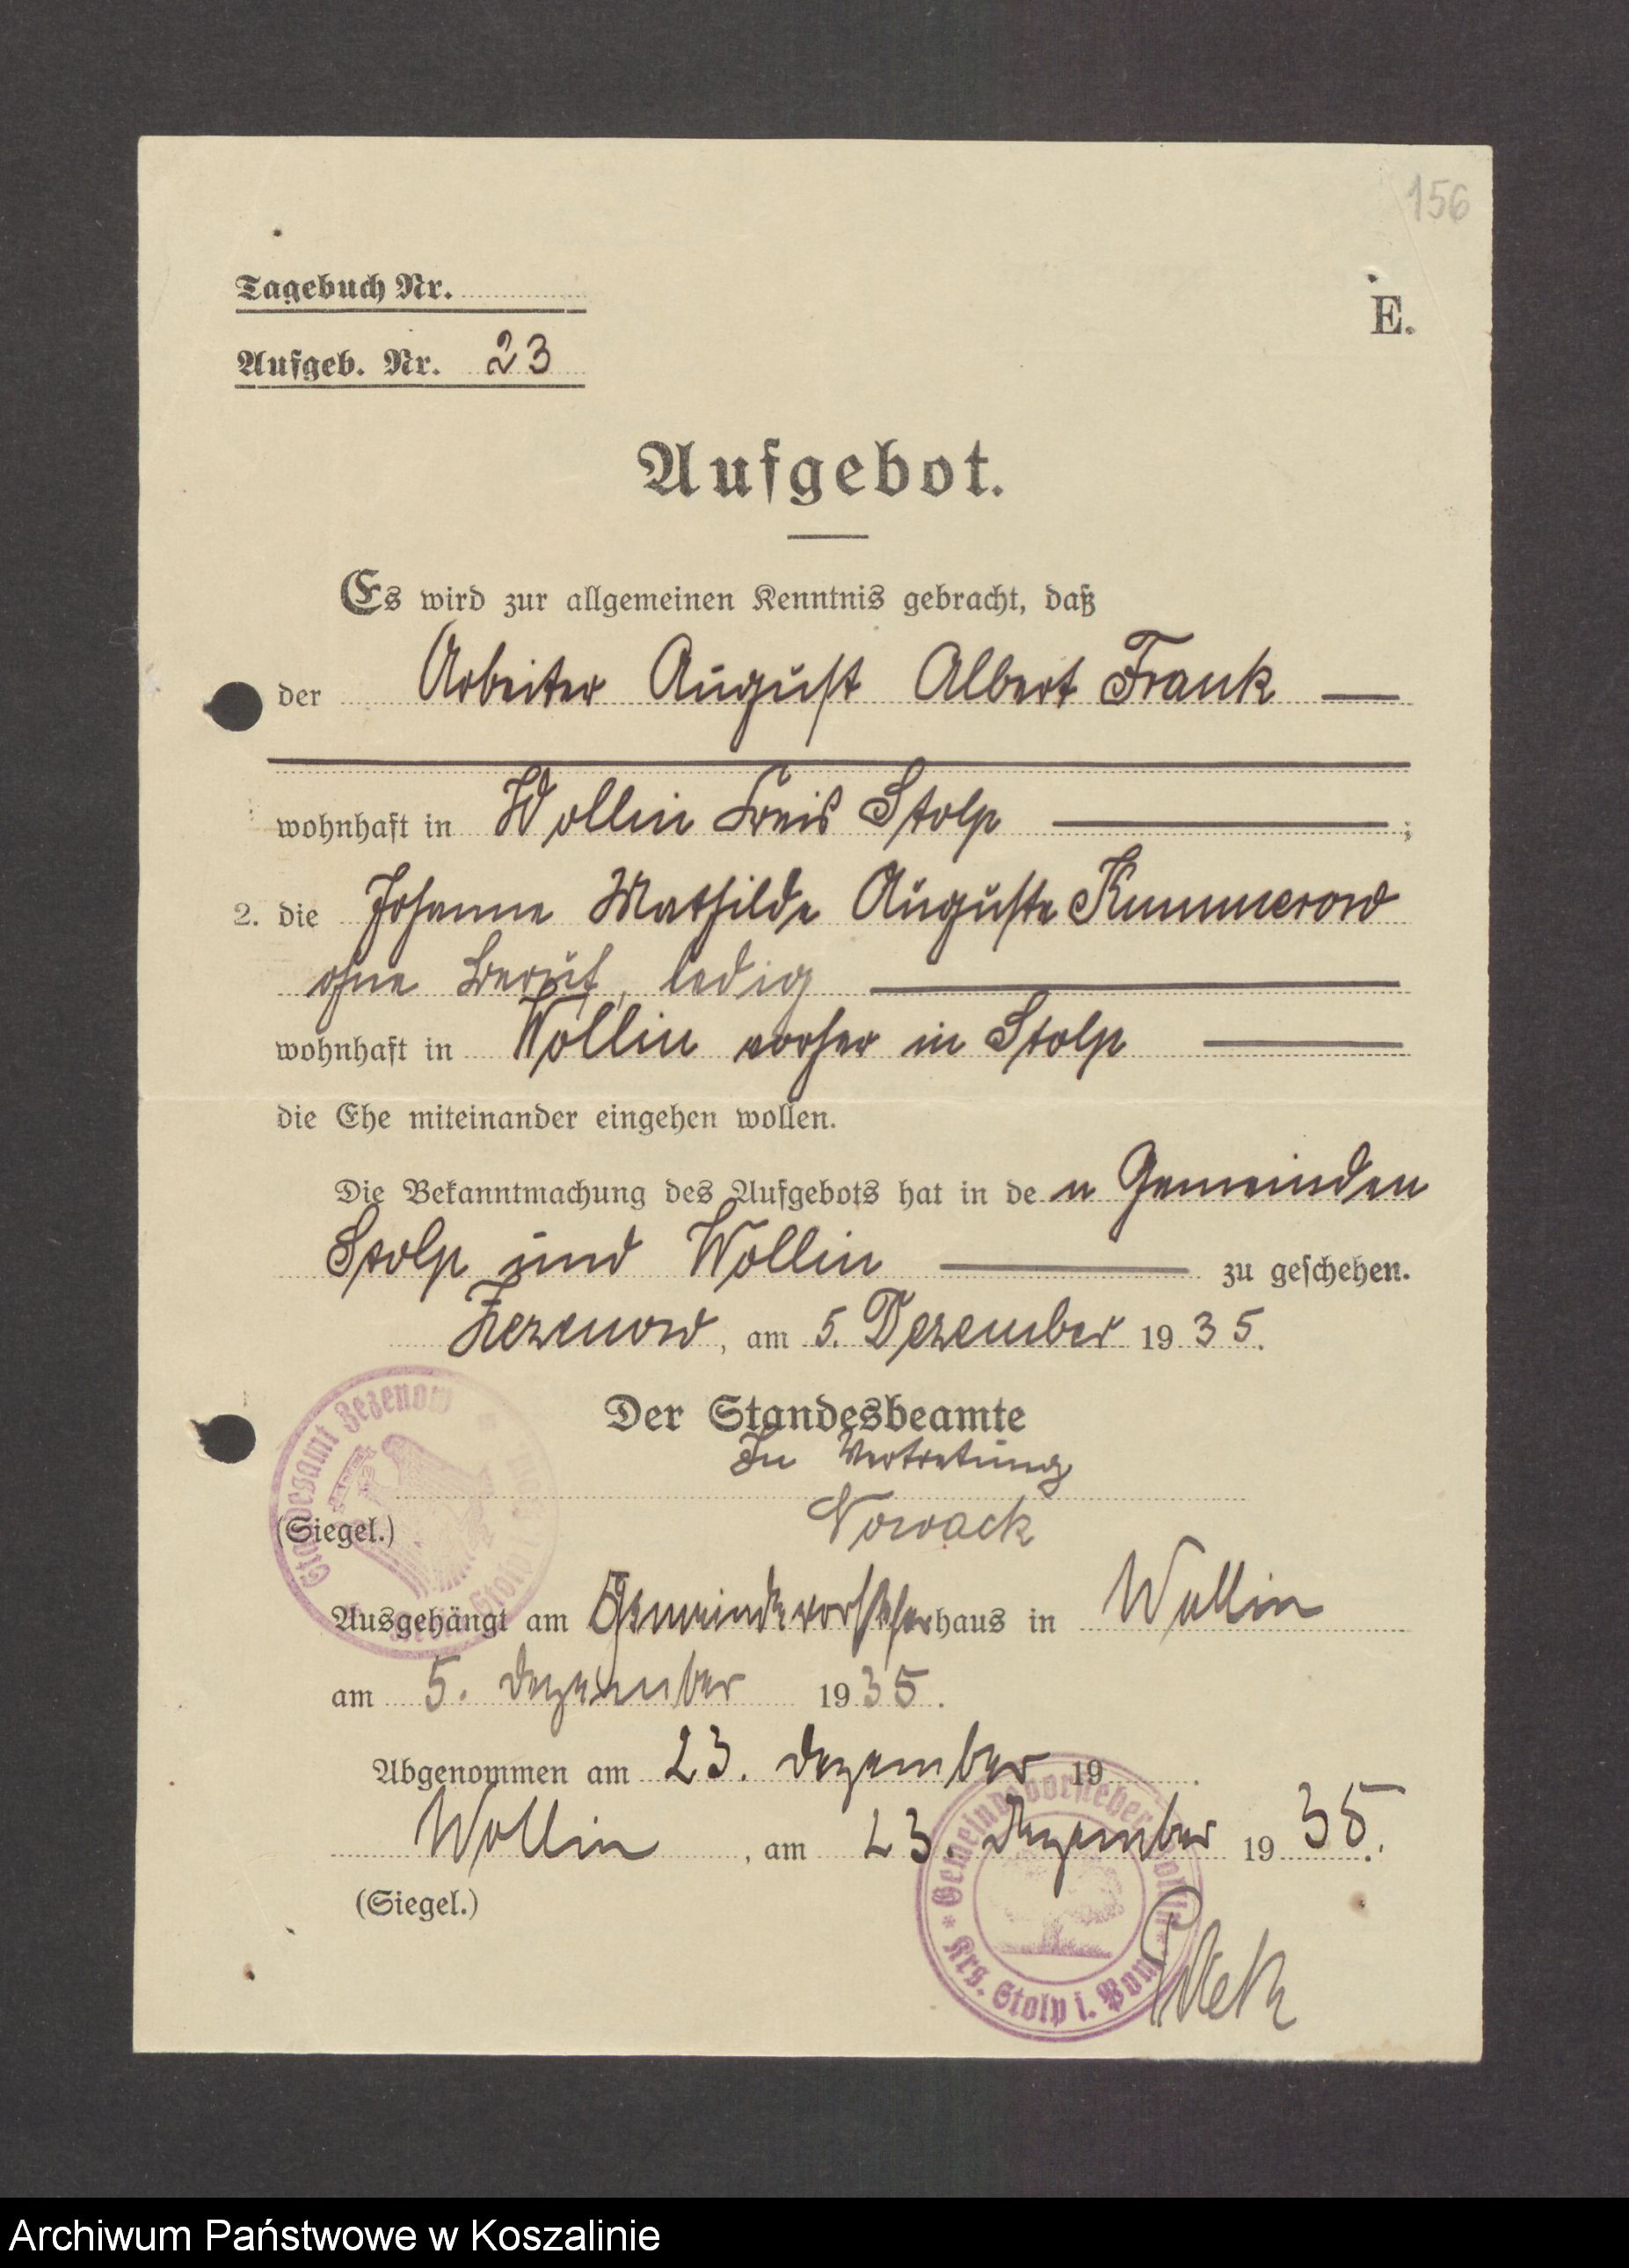 156
Tagebuch Nr.
E.
Aufgeb. Nr. 23
Aufgebot.
Es wird zur allgemeinen Kenntnis gebracht, daß
der Arbeiter August Albert Frank
wohnhaft in Wollin Kreis Stolp ;
2. die Johanne Mathilde Auguste Kummerow
ohne Beruf, ledig
wohnhaft in Wollin vorher in Stolp
die Ehe miteinander eingehen wollen.
Die Bekanntmachung des Aufgebots hat in de n Gemeinden
Stolp und Wollin zu geschehen.
Zezenow, am 5. Dezember 1935.
Standesamt Zezenow
Stolp
Der Standesbeamte
In Vertretung
Nowack
(Siegel.)
Ausgehängt am Gemeindevorsteherhaus in Wollin
am 5. Dezember 1935.
Abgenommen am 23. Dezember 19 .
Wollin, am 23. Dezember 1935.
(Siegel.)
Gemeindevorsteher Wollin
* Krs. Stolp i. Pom. *
Archiwum Państwowe w Koszalinie